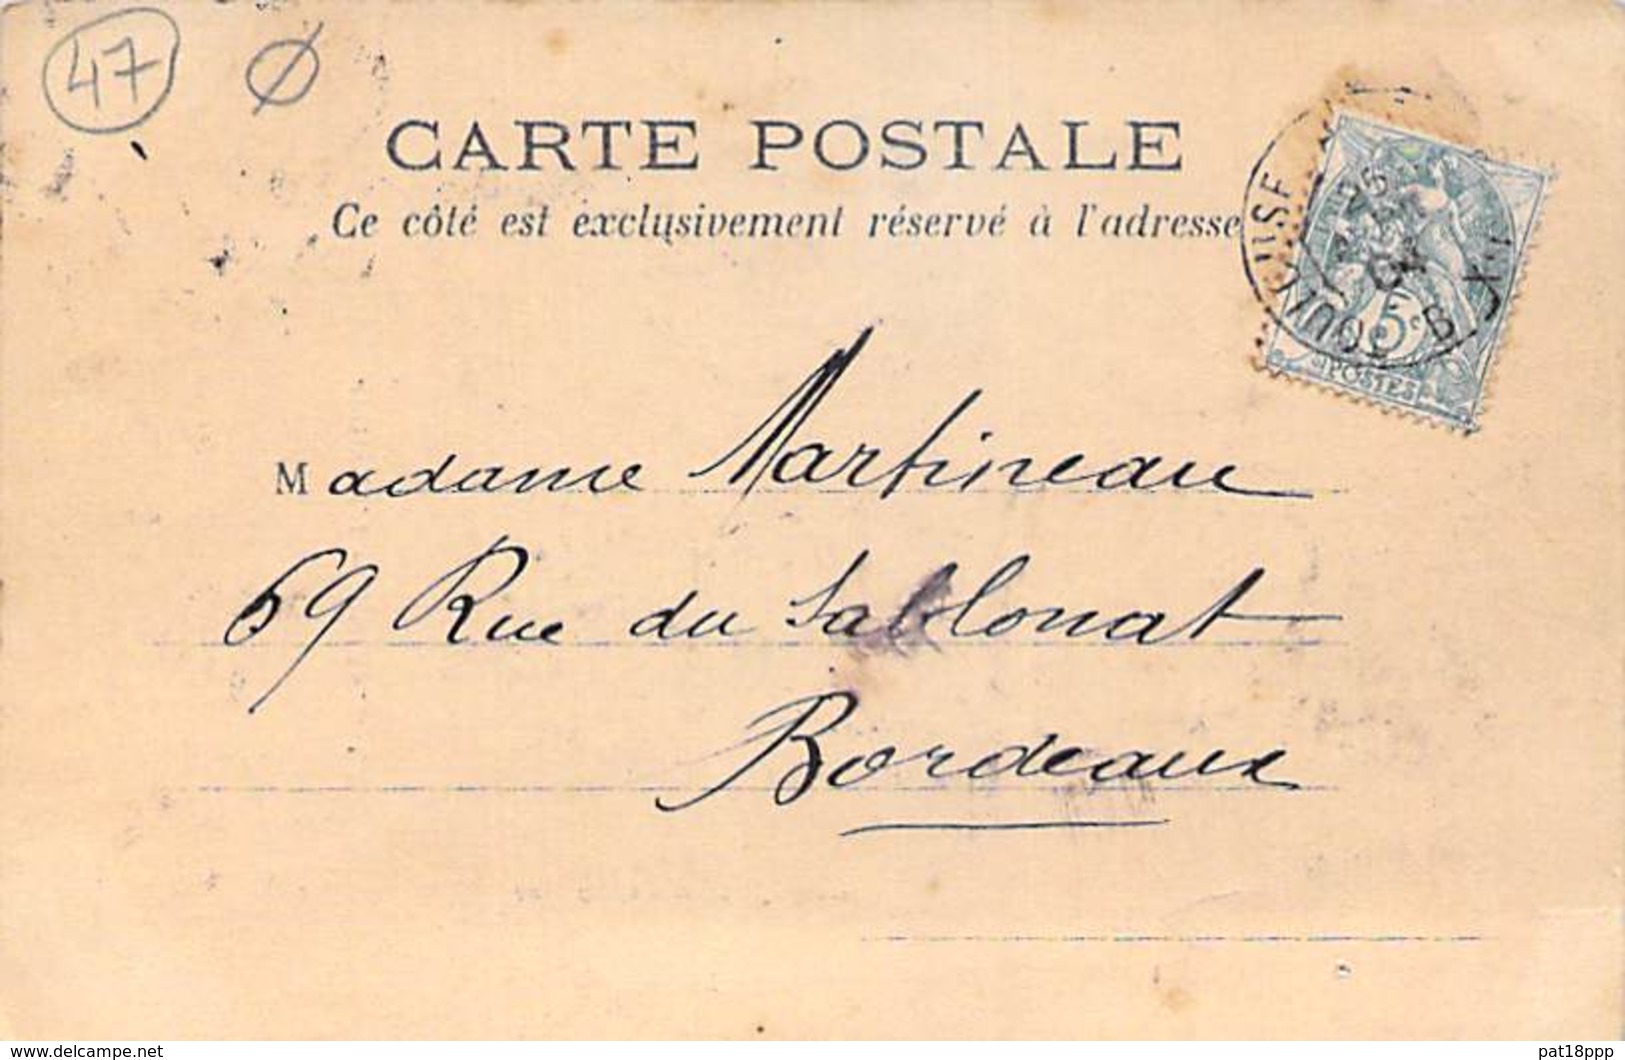 47
CARTE POSTALE
Ce côté est exclusivement réservé à l'adresse
5c
POSTES
B
Madame Martineau
69 Rue du Sablonat
Bordeaux
www.delcampe.net
pat18ppp